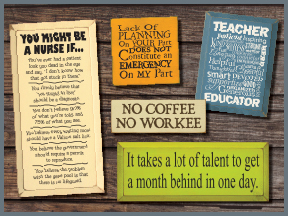 YOU MIGHT BE
A NURSE IF...
You've ever had a patient
look you dead in the eye
and say, "I don't know how
that got stuck in there."
You firmly believe that
"too stupid to live"
should be a diagnosis.
You don't believe 90%
of what you're told, and
75% of what you see.
You believe every waiting room
should have a Valium salt lick.
You believe the government
should require a permit
to reproduce.
You believe the problem
with the gene pool is that
there is no lifeguard.
Lack Of
PLANNING
On YOUR Part
DOES NOt
Constitute an
EMERGENCY
On MY Part
TEACHER
patient
inspiring
smart
EDUCATOR
NO COFFEE
NO WORKEE
It takes a lot of talent to get
a month behind in one day.